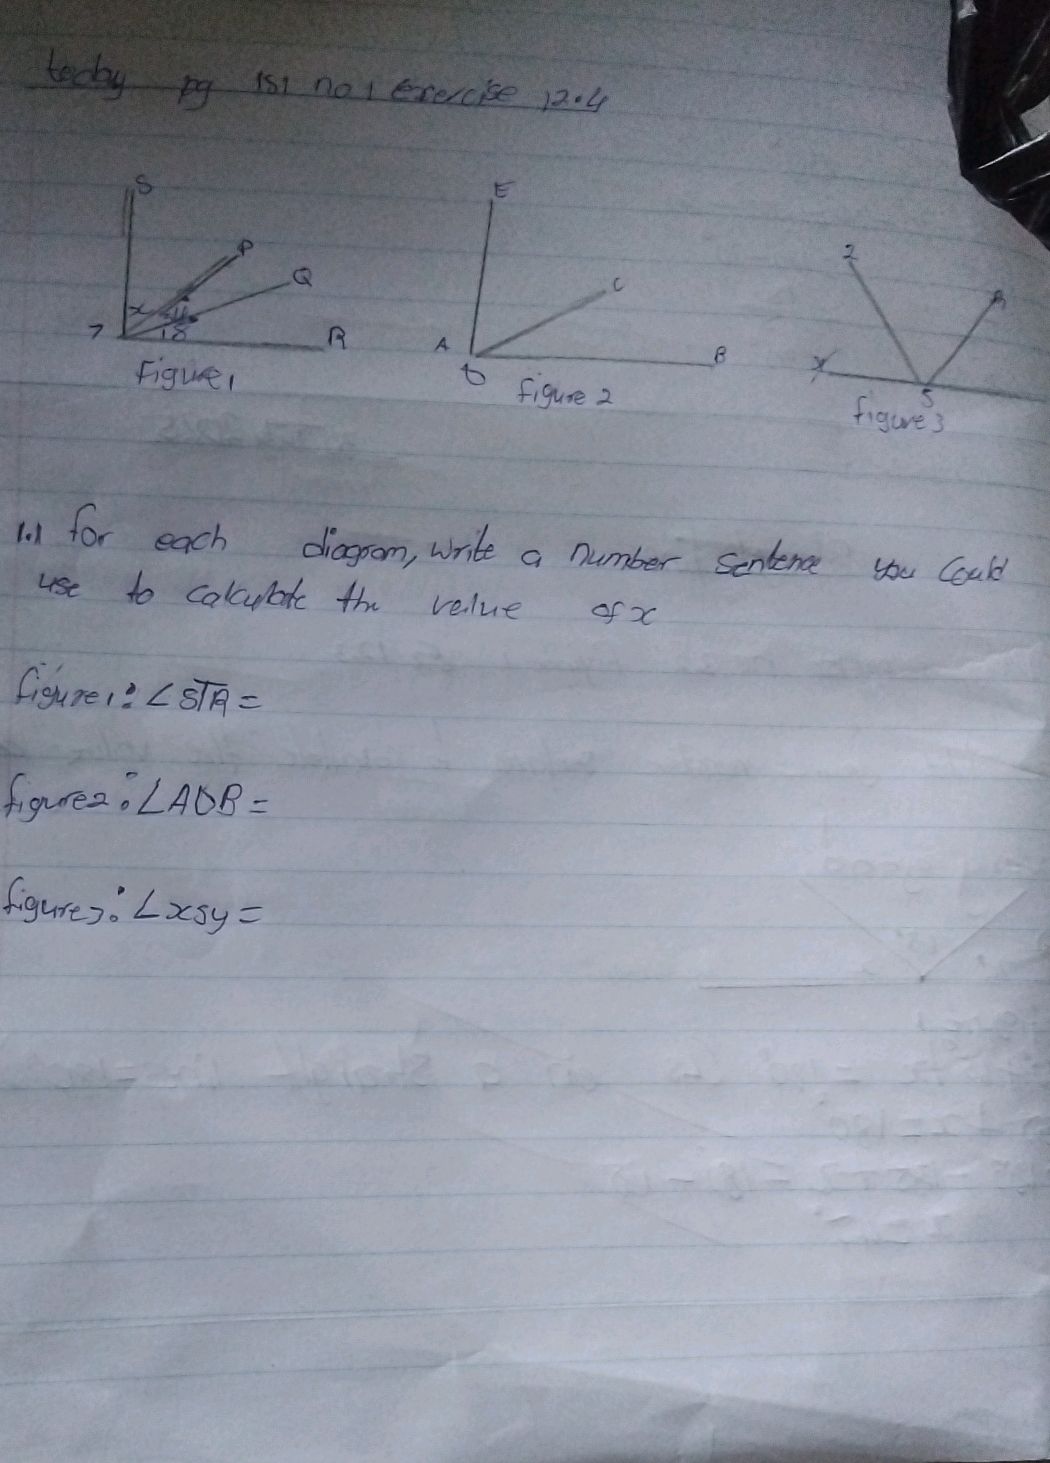 today pg 151 no 1 exercise 12.4
S
P
Q
x
18
R
7
Figure 1
E
C
A
B
D
figure 2
Z
R
X
S
figure 3
1.1 for each diagram, write a number sentence you could
use to calculate the value of x
figure 1: ∠STR =
figure 2: ∠ADB =
figure 3: ∠xsy =